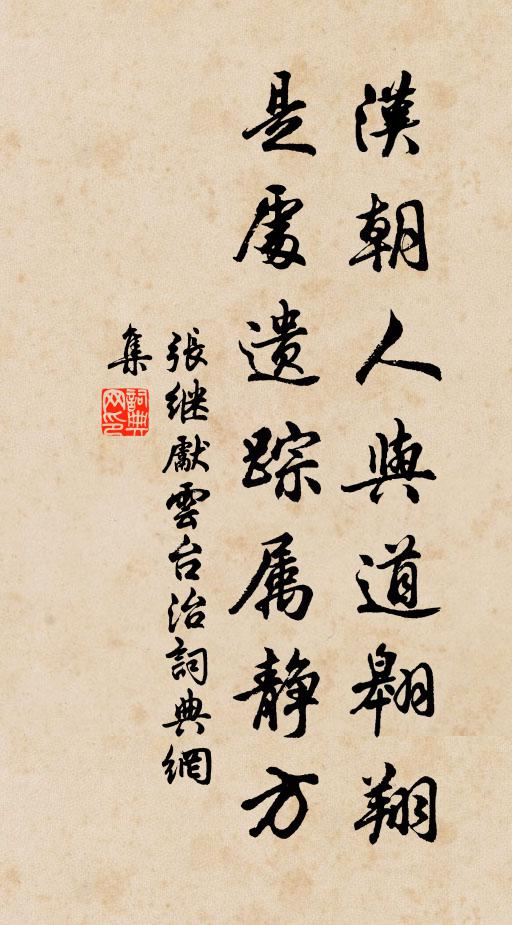 漢朝人與道翱翔
是處遺踪属静方
張继獻雲台治詞典網
集
詞典
网印